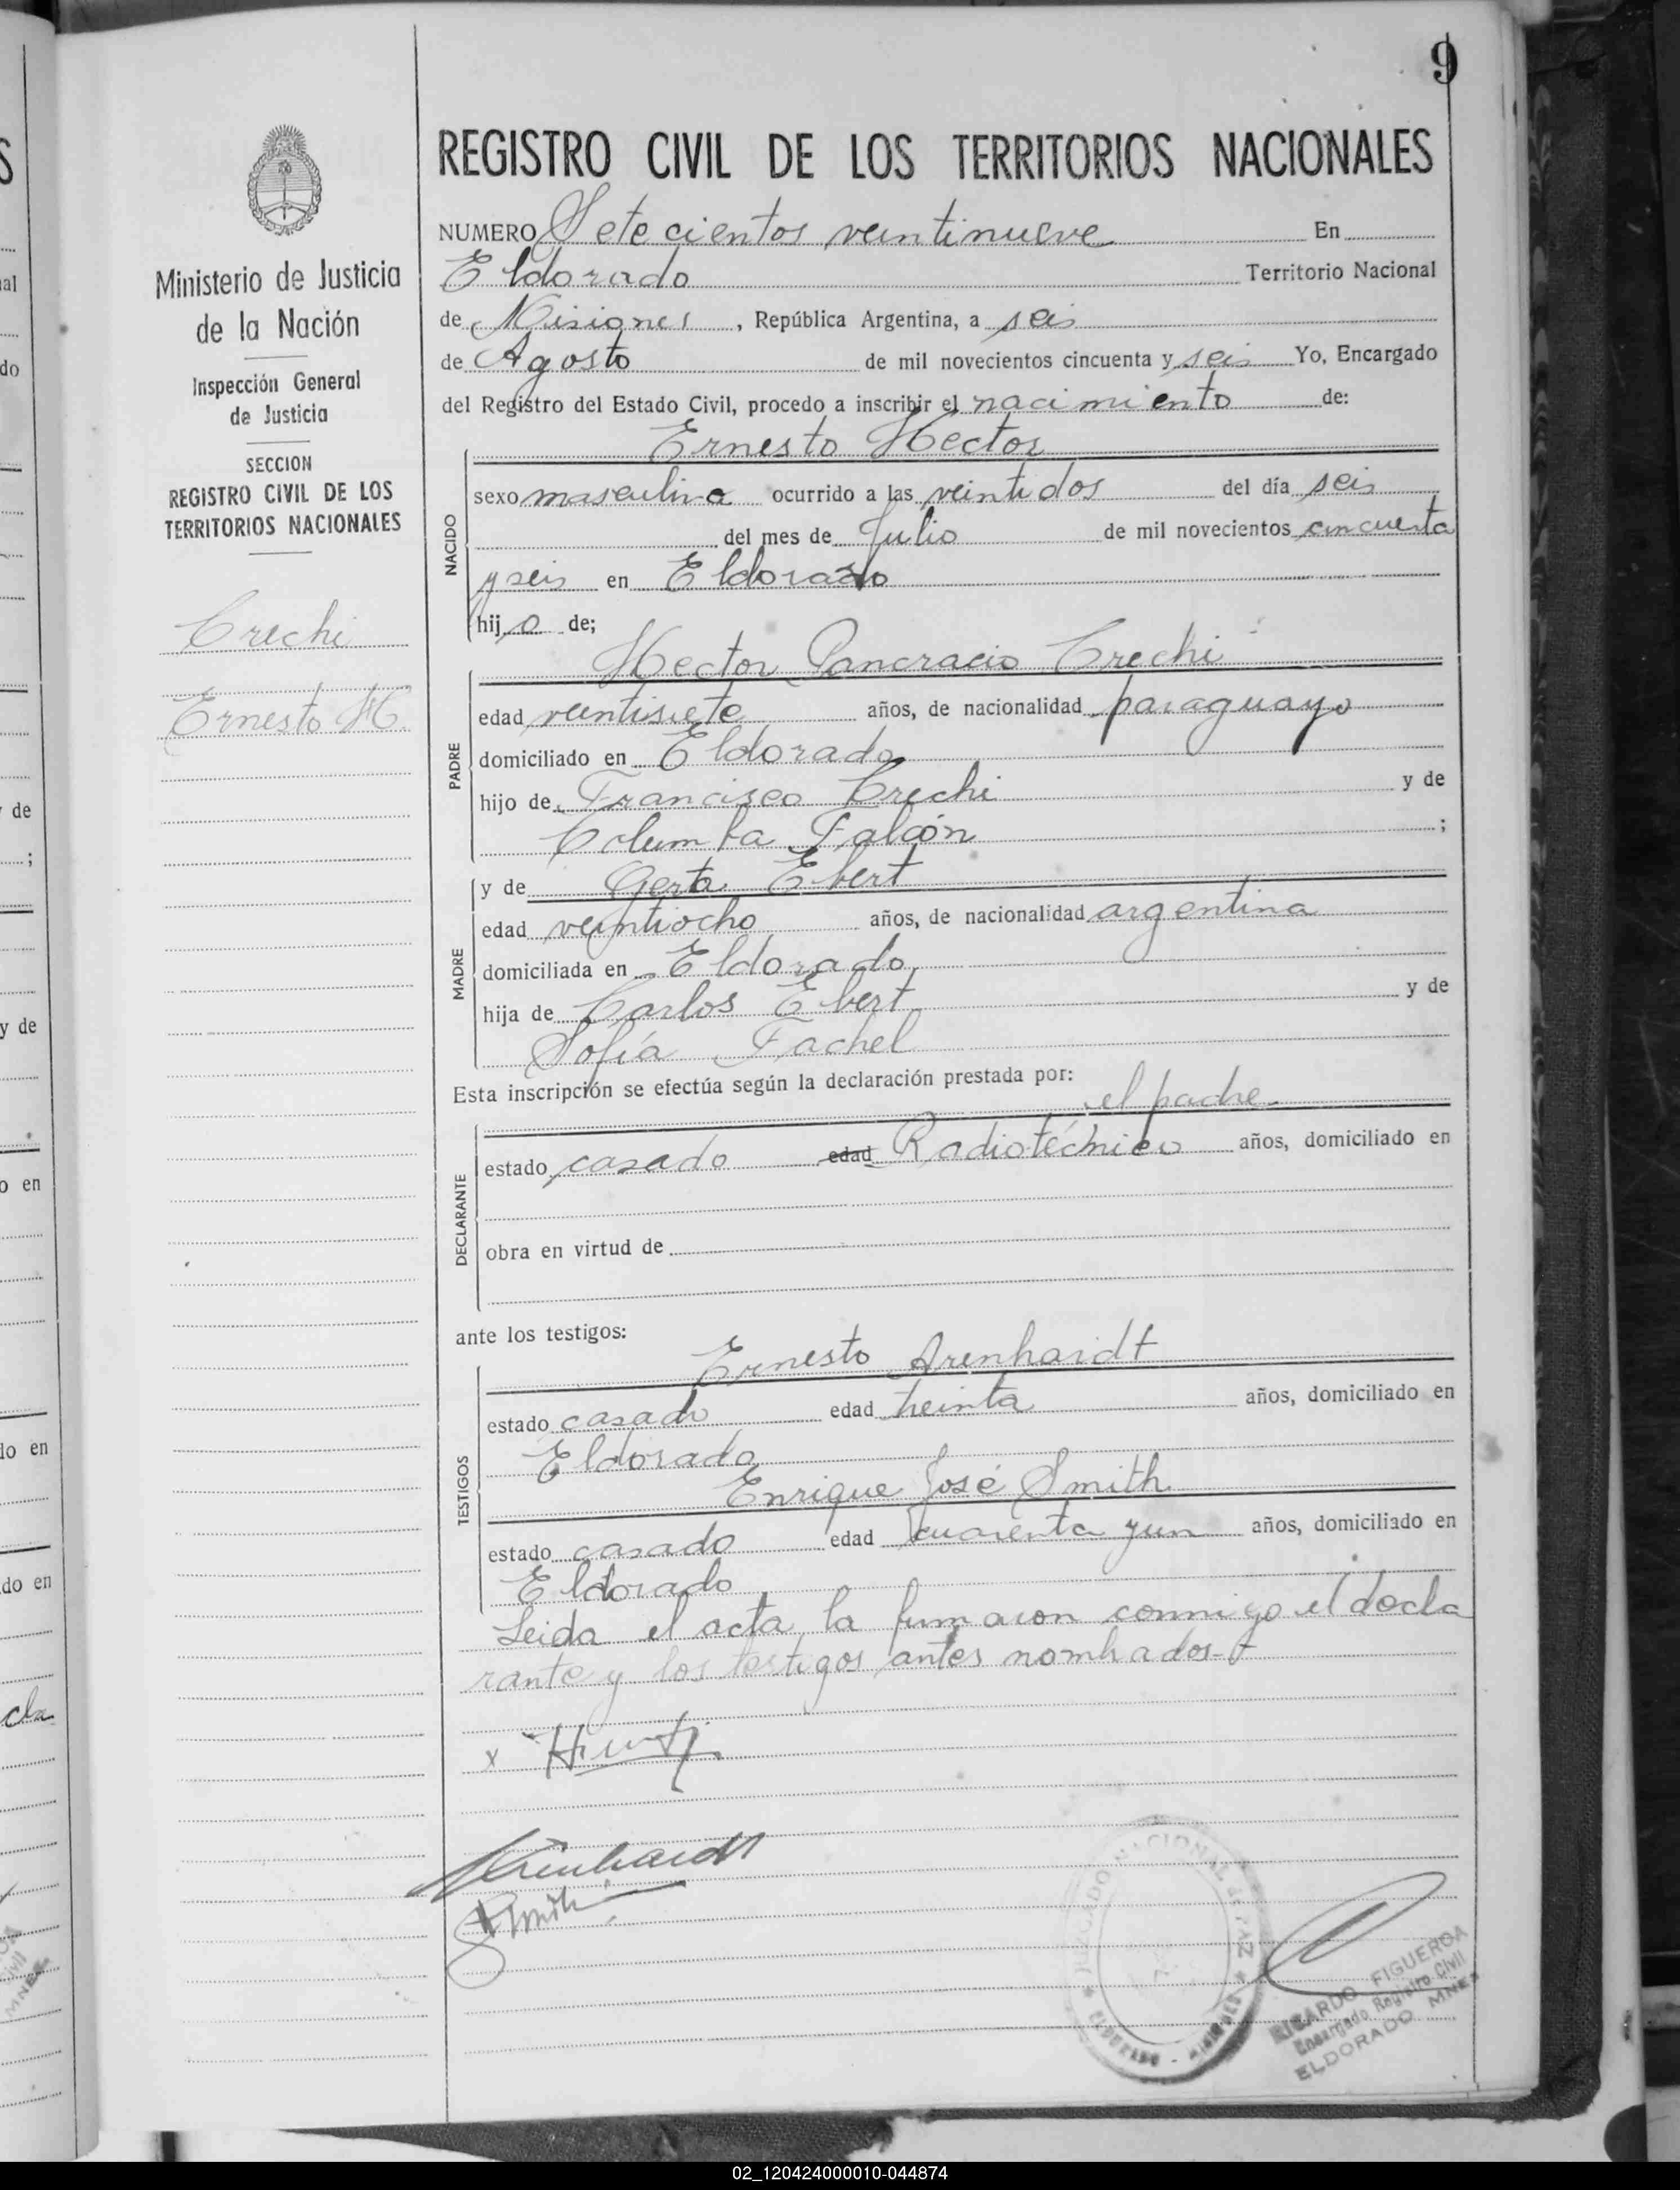 9
REGISTRO CIVIL DE LOS TERRITORIOS NACIONALES
Ministerio de Justicia
de la Nación
Inspección General
de Justicia
SECCION
REGISTRO CIVIL DE LOS
TERRITORIOS NACIONALES
Crechi
Ernesto H.
NUMERO Setecientos veintinueve En
Eldorado Territorio Nacional
de Misiones, República Argentina, a seis
de Agosto de mil novecientos cincuenta y seis Yo, Encargado
del Registro del Estado Civil, procedo a inscribir el nacimiento de:
Ernesto Hector
NACIDO
sexo masculino ocurrido a las veintidos del día seis
del mes de Julio de mil novecientos cincuenta
y seis en Eldorado
hijo de;
Hector Pancracio Crechi
PADRE
edad veintisiete años, de nacionalidad paraguayo
domiciliado en Eldorado
hijo de Francisco Crechi y de
Columba Falcón ;
MADRE
y de Gerta Ebert
edad veintiocho años, de nacionalidad argentina
domiciliada en Eldorado
hija de Carlos Ebert y de
Sofía Fachel
Esta inscripción se efectúa según la declaración prestada por:
el padre.
DECLARANTE
estado casado edad Radiotécnico años, domiciliado en
obra en virtud de
ante los testigos:
Ernesto Arenhaidt
TESTIGOS
estado casado edad treinta años, domiciliado en
Eldorado
Enrique José Smith
estado casado edad cuarenta y un años, domiciliado en
Eldorado
Leida el acta la firmaron conmigo el decla
rante y los testigos antes nombrados-
x
JUZGADO NACIONAL de PAZ
ELDORADO - MISIONES
RICARDO FIGUEROA
Encargado Registro Civil
ELDORADO MNES
02_120424000010-044874